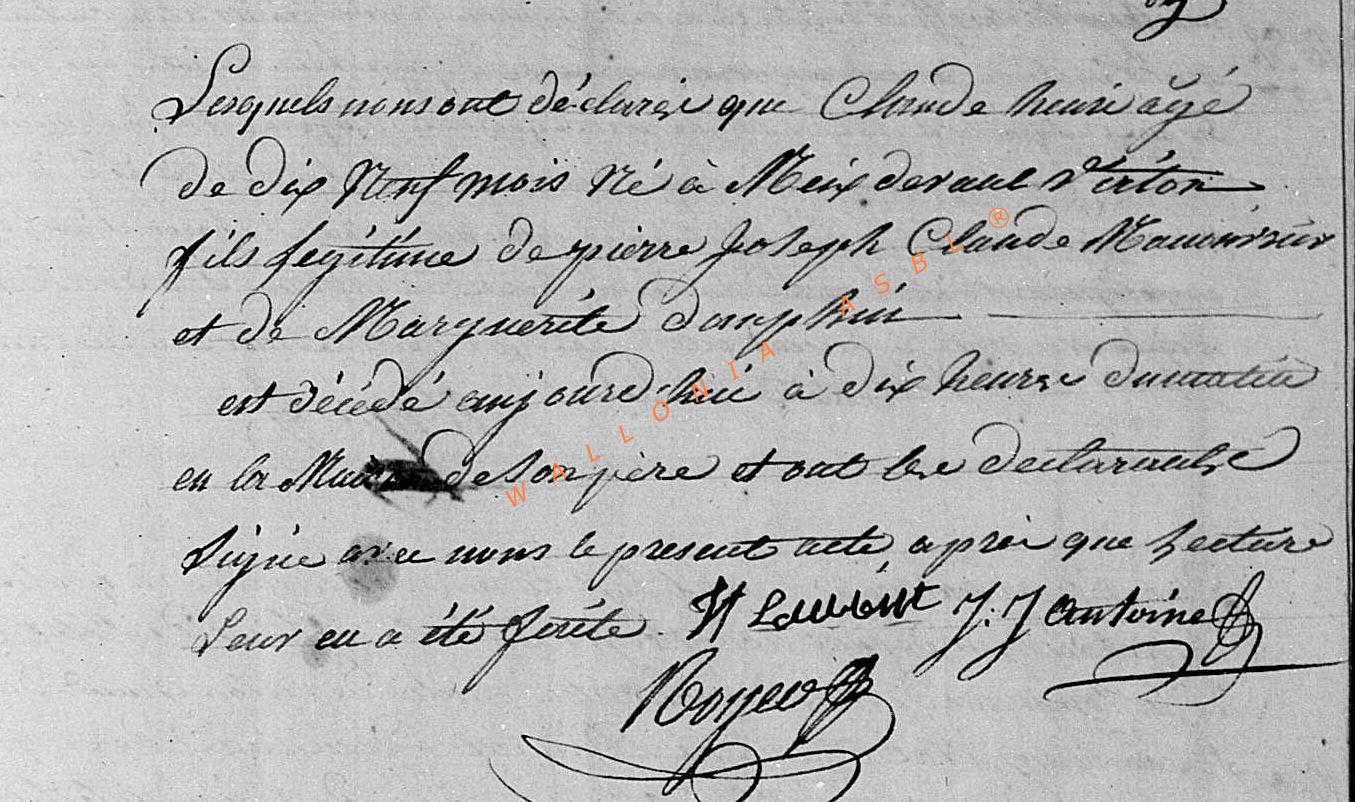 Lesquels nous ont déclarés que Claude henri âgé
de dix Neuf mois Né à Meix devant Virton
fils legitime de pierre Joseph Claude
et de Marguerite dauphin
est décédé aujourd'hui à dix heures du matin
en la de son père et ont les declarants
signé avec nous le present acte, après que Lecture
Leur en a été faite. H Laurent J: J antoine
Royer
WALLONIA ASBL ®